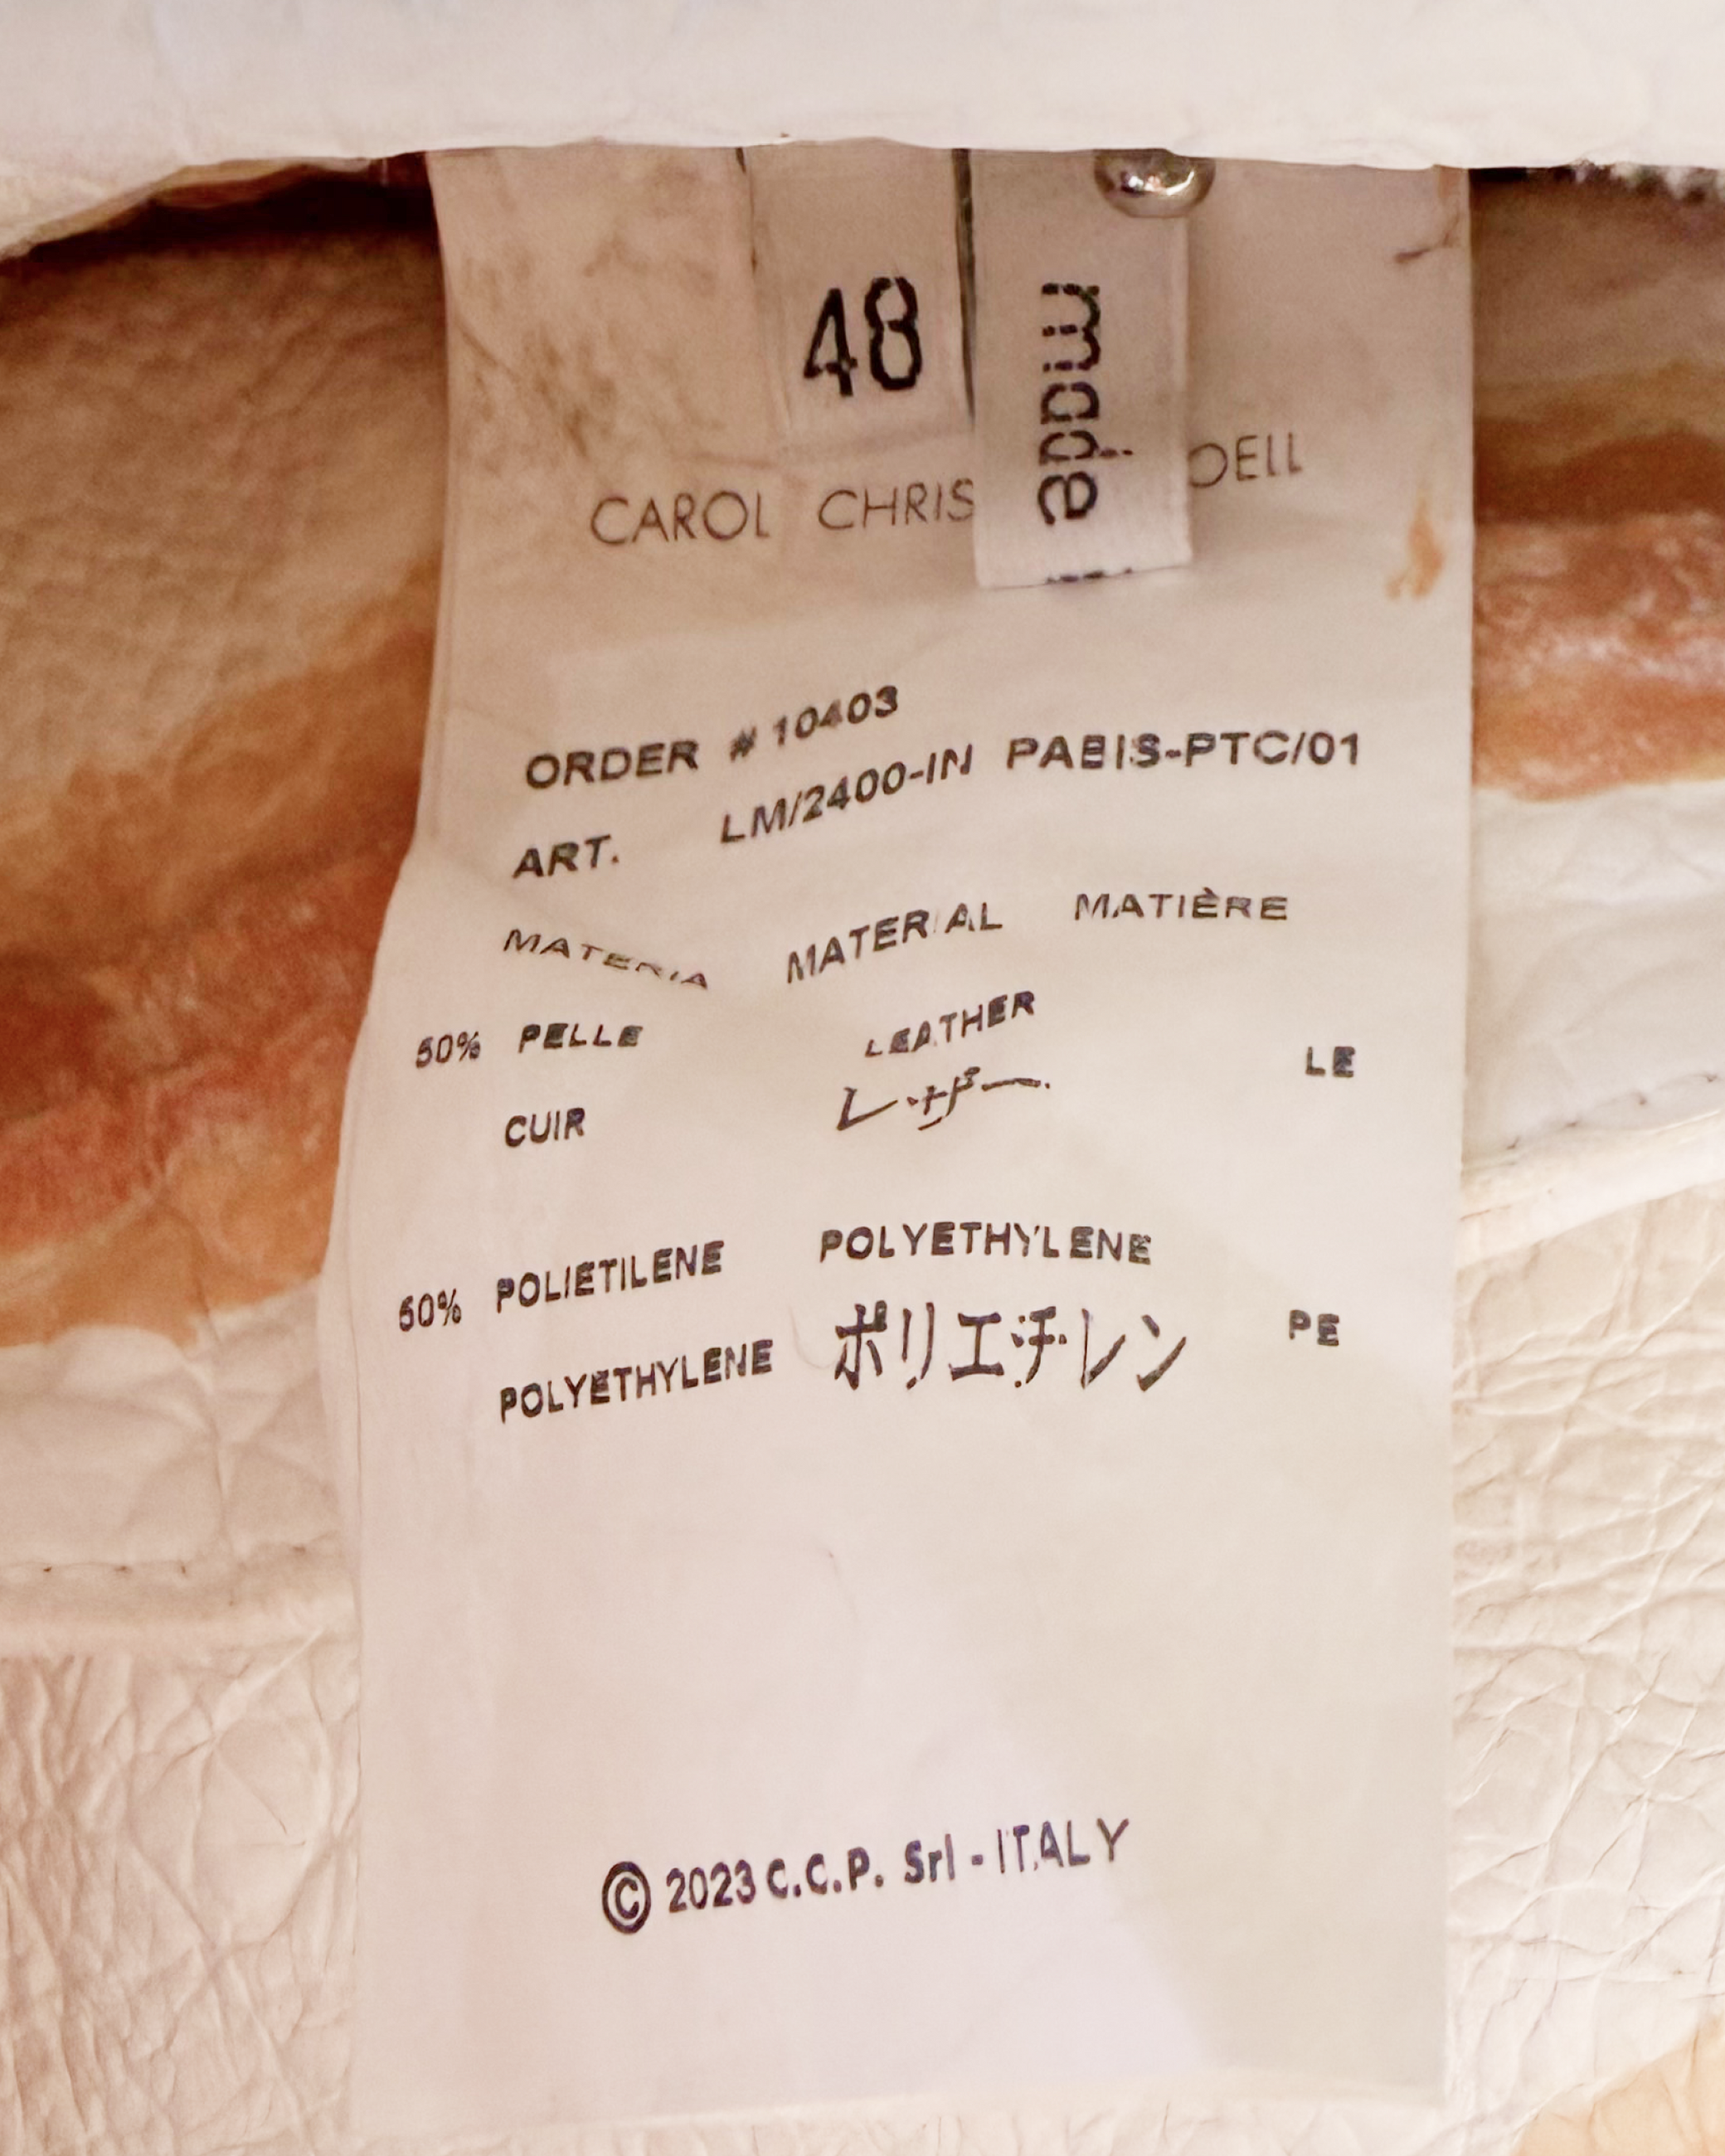 48
made
CAROL CHRIS OELL
ORDER # 10403
ART. LM/2400-IN PABIS-PTC/01
MATERIA MATERIAL MATIÈRE
50% PELLE LEATHER
CUIR レザー LE
50% POLIETILENE POLYETHYLENE
POLYETHYLENE ポリエチレン PE
© 2023 C.C.P. Srl - ITALY